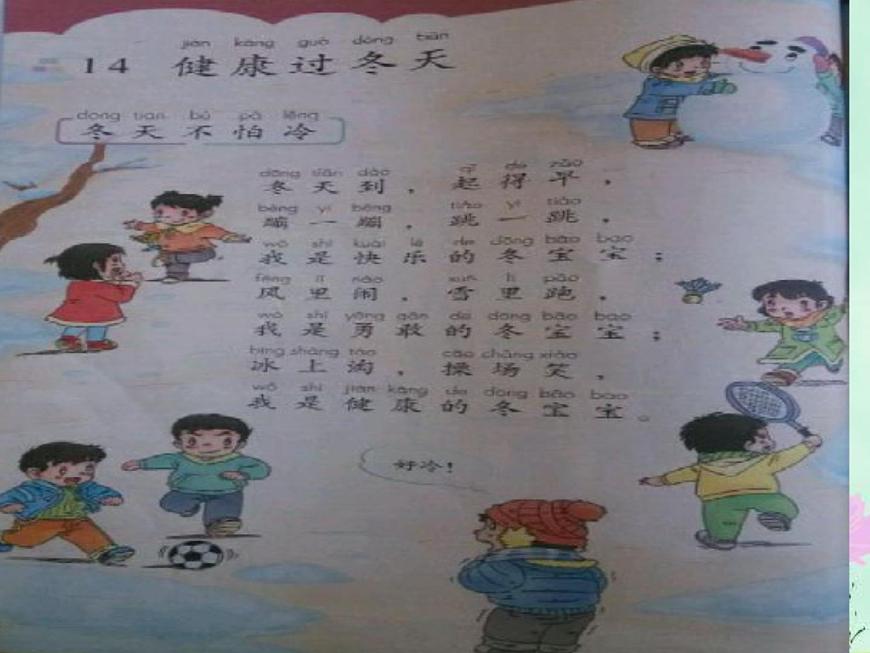 jiàn kāng guò dōng tiān
14 健康过冬天
dōng tiān bú pà lěng
冬天不怕冷
dōng tiān dào qǐ de zǎo
冬天到，起得早，
bèng yí bèng tiào yí tiào
蹦一蹦，跳一跳，
wǒ shì kuài lè de dōng bǎo bao
我是快乐的冬宝宝；
fēng lǐ nào xuě lǐ pǎo
风里闹，雪里跑，
wǒ shì yǒng gǎn de dōng bǎo bao
我是勇敢的冬宝宝；
bīng shàng táo cāo chǎng xiào
冰上淘，操场笑，
wǒ shì jiàn kāng de dōng bǎo bao
我是健康的冬宝宝。
好冷！